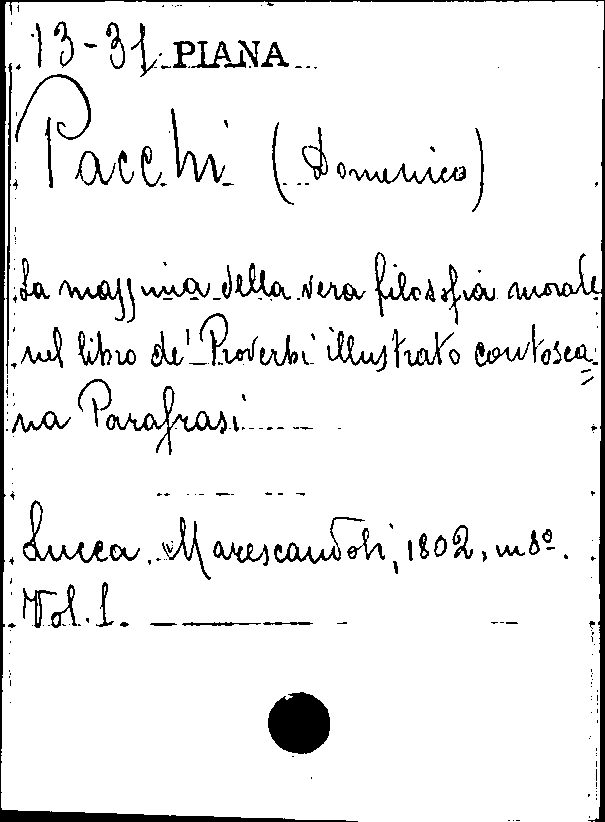 13-31 PIANA
Pacchi (Domenico)
La massima della vera filosofia morale
nel libro de' Proverbi illustrato con tosca=
na Parafrasi
Lucca. Marescandoli, 1802, in 8º.
Vol. 1.